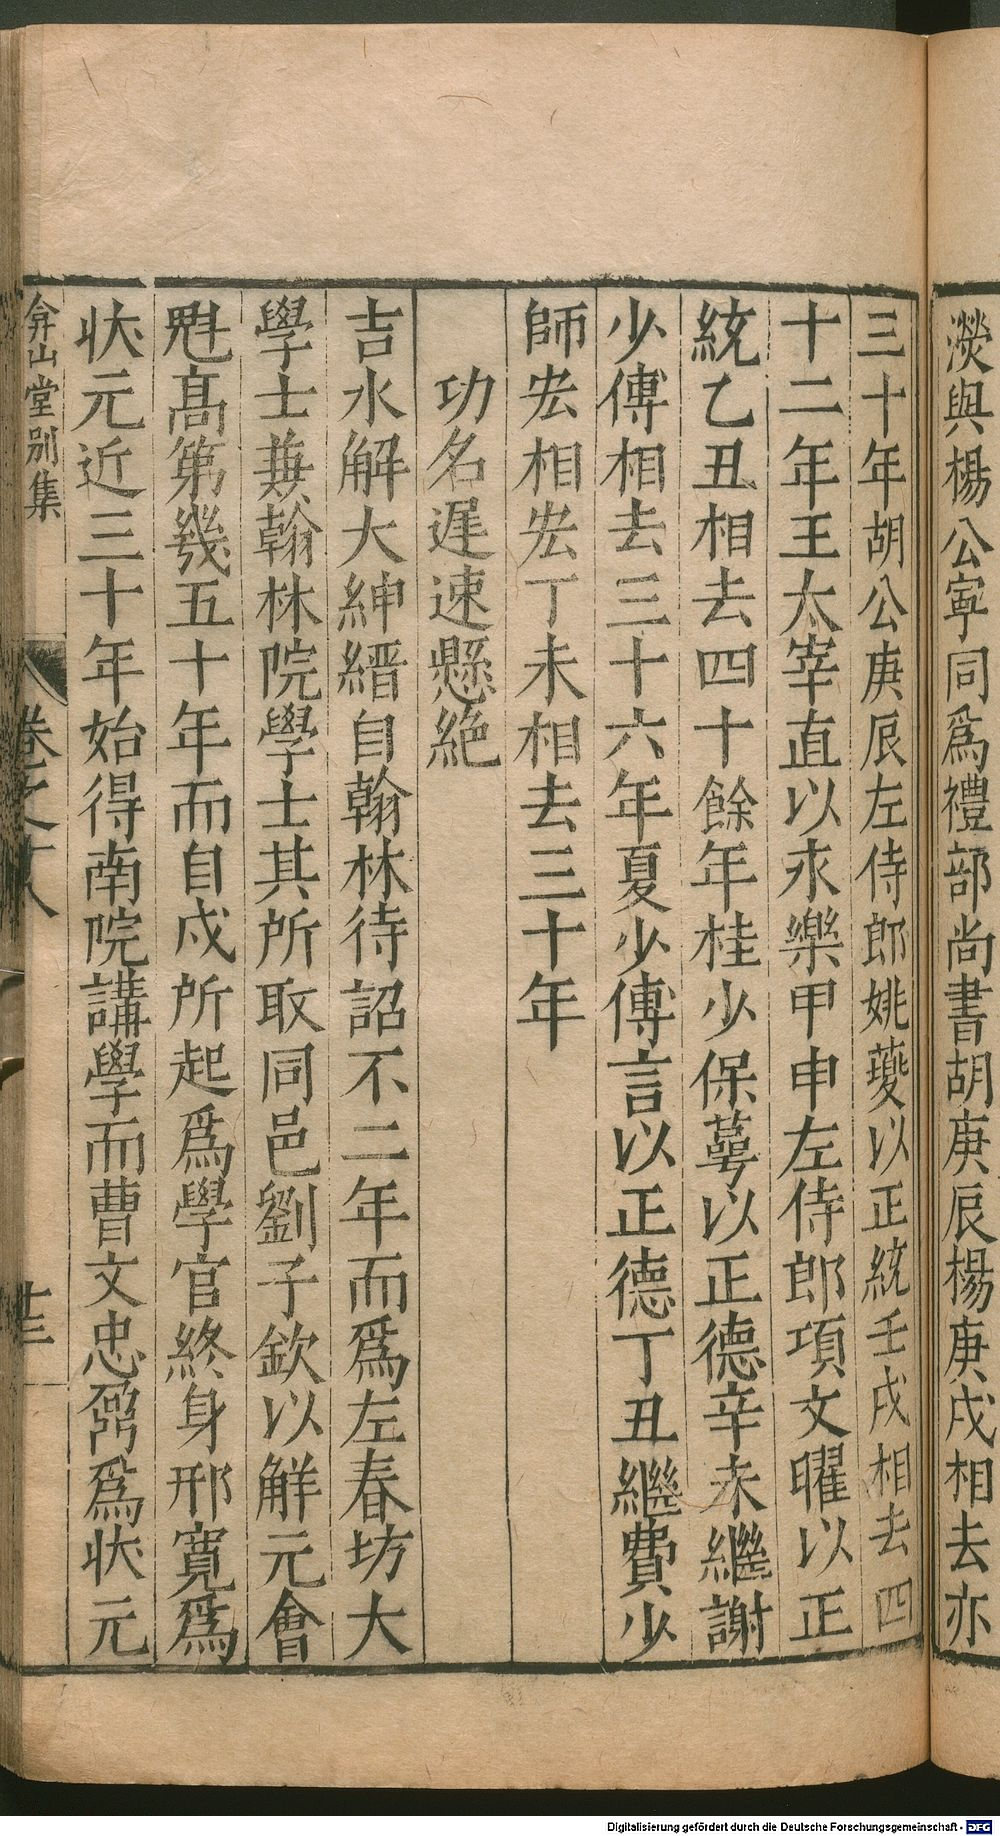 濙與楊公寧同爲禮部尚書胡庚辰楊庚戌相去亦
三十年胡公庚辰左侍郎姚夔以正統壬戌相去四
十二年王太宰直以永樂甲申左侍郎項文曜以正
統乙丑相去四十餘年桂少保蕚以正德辛未繼謝
少傅相去三十六年夏少傅言以正德丁丑繼費少
師宏相宏丁未相去三十年
功名遲速懸絶
吉水解大紳縉自翰林待詔不二年而爲左春坊大
學士兼翰林院學士其所取同邑劉子欽以解元會
魁髙第幾五十年而自戍所起爲學官終身邢寬爲
狀元近三十年始得南院講學而曹文忠鼐爲狀元
弇山堂别集
卷之十八
廿三
Digitalisierung gefördert durch die Deutsche Forschungsgemeinschaft - DFG